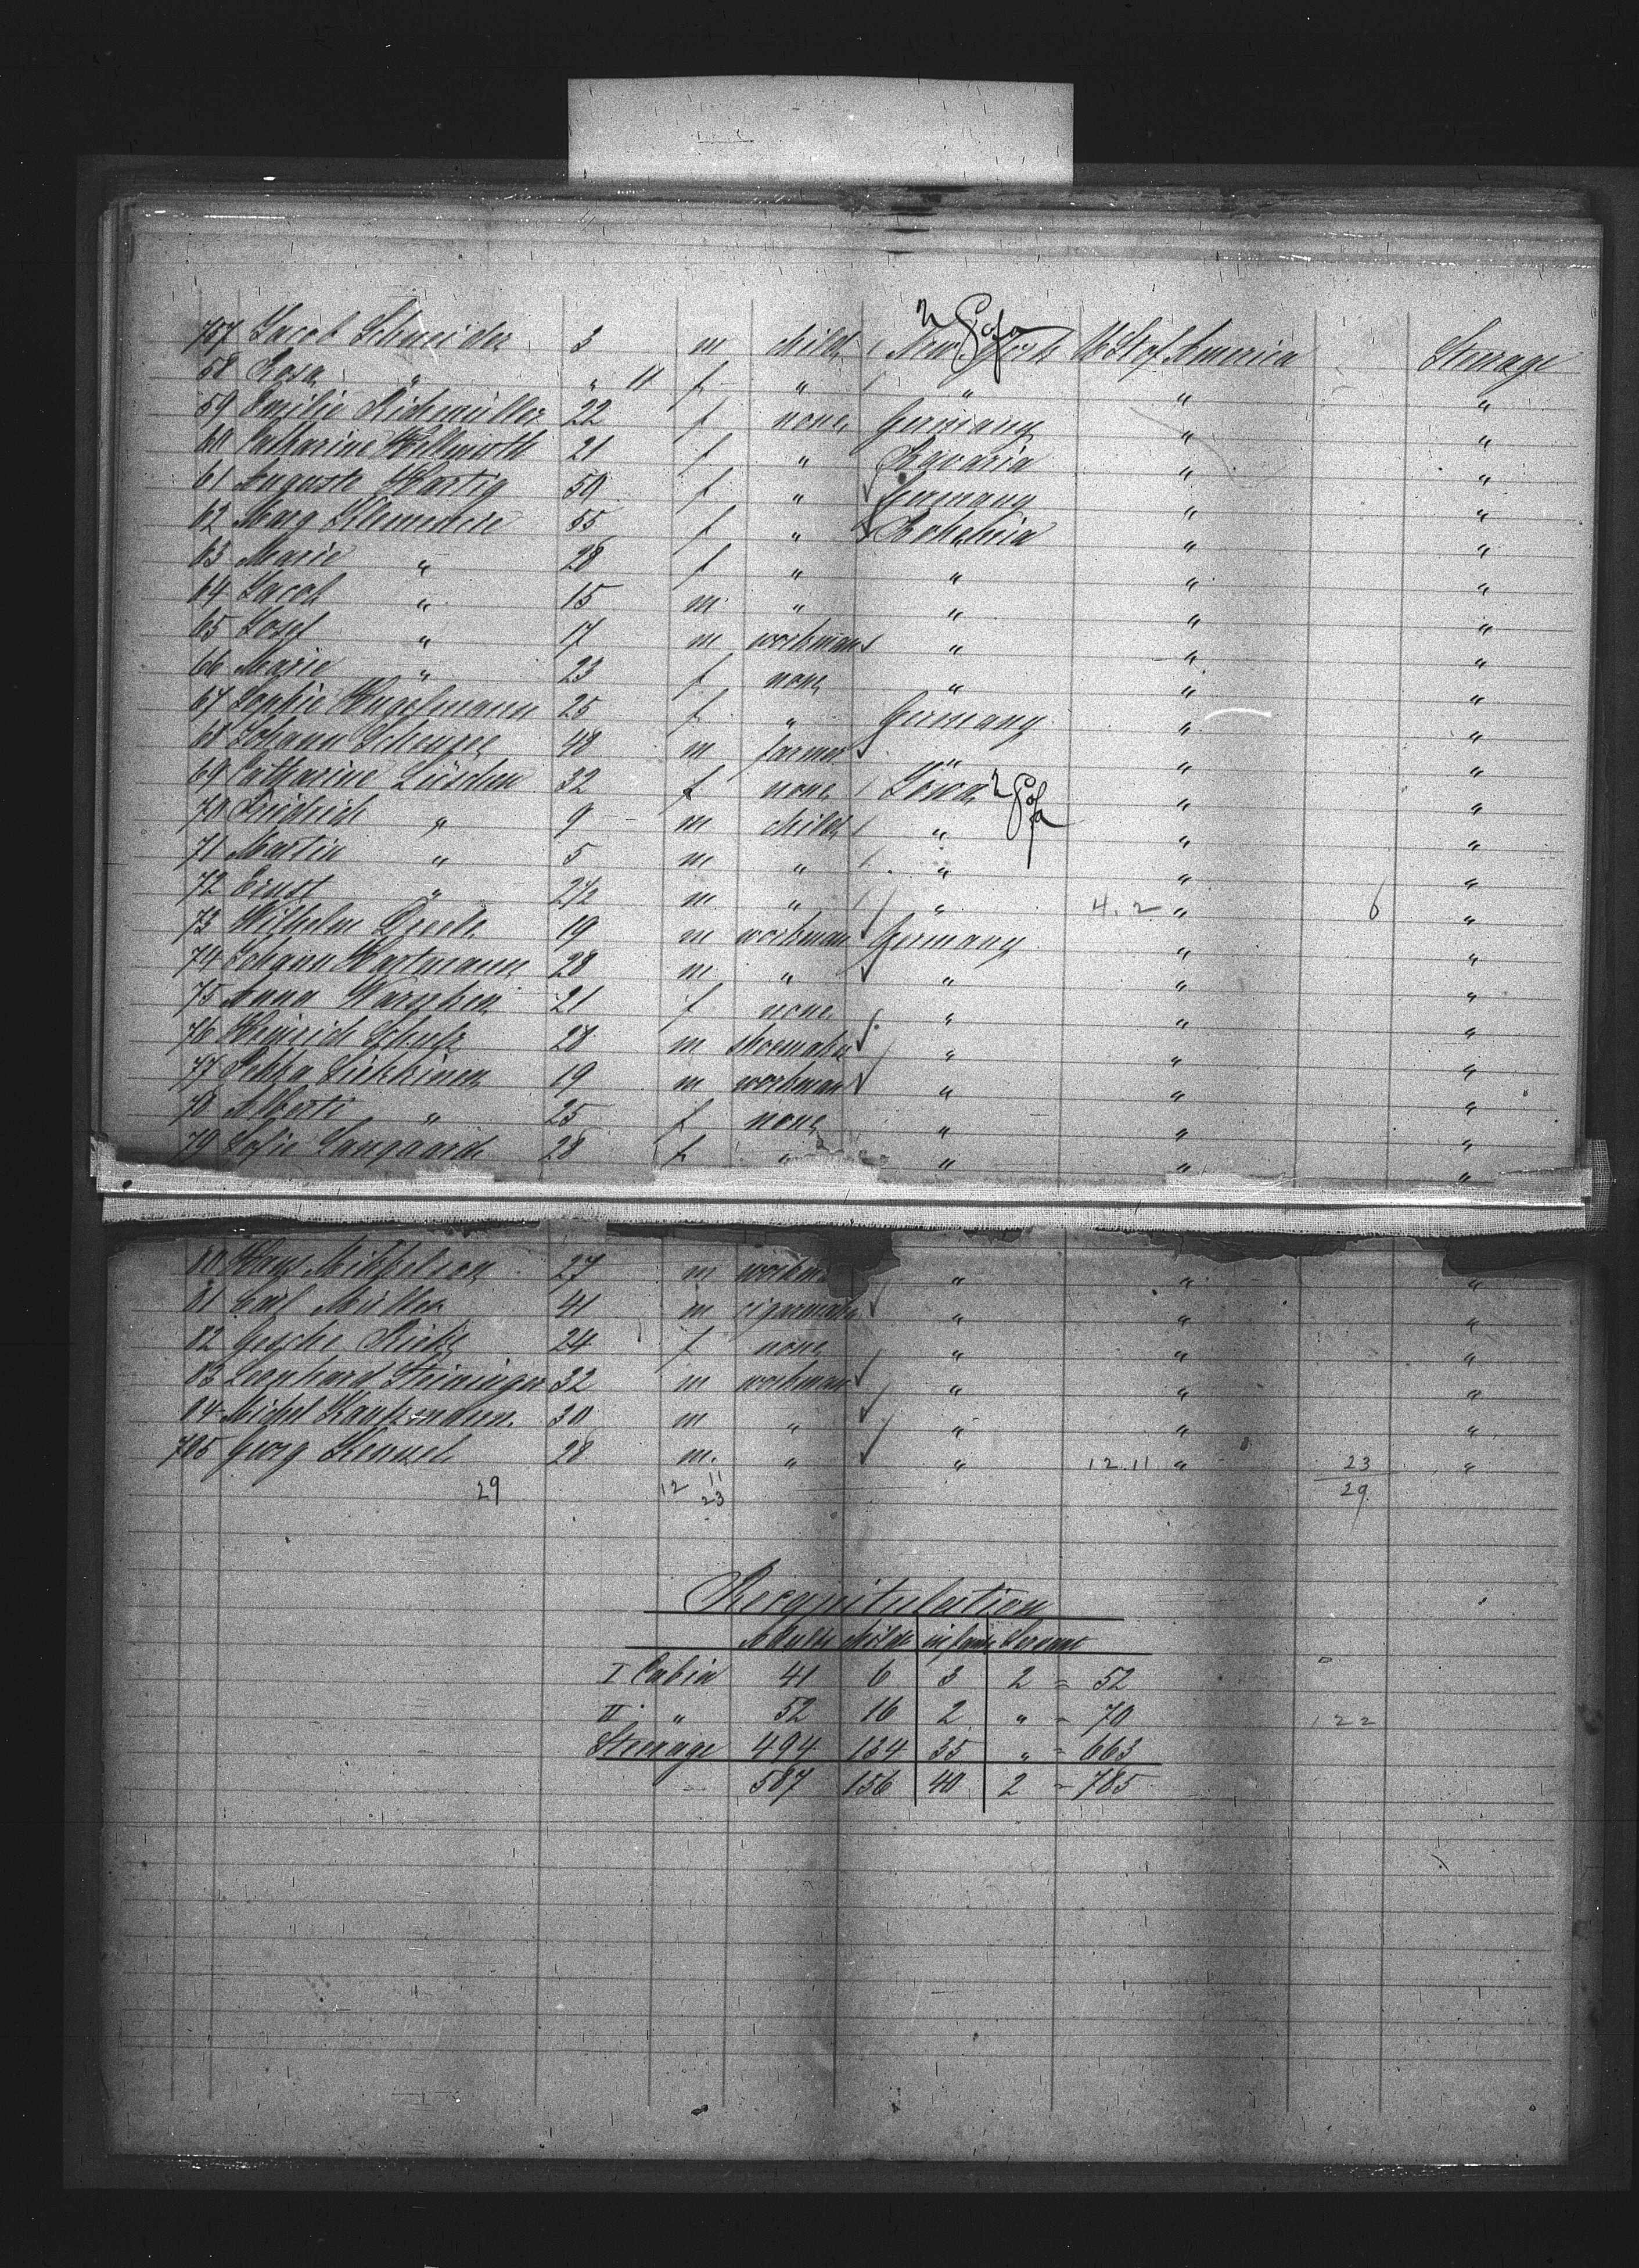 757 Jacob Schneider 3 m child New York U St of America Steerage
58 Rosa " " 11 f " " " "
59 Emilie Richmüller 22 f none Germany " "
60 Catharine Hillmuth 21 f " Bavaria " "
61 Auguste Hartig 50 f " Germany " "
62 Marg 55 f " Bohemia " "
63 Marie " 28 f " " " "
64 Jacob " 15 m " " " "
65 Josef " 17 m workman " " "
66 Marie " 23 f none " " "
67 Sophie 25 f " Germany " "
68 Johann 48 m farmer " " "
69 Catharine Lüschen 32 f none Iowa " "
70 Friedrich " 9 m child " " "
71 Martin " 5 m " " " "
72 Ernst " 2 1/2 m " " 4.2 " 6 "
73 Wilhelm 19 m workman Germany " "
74 Johann Hartmann 28 m " " " "
75 Anna 21 f none " " "
76 Heinrich Schulz 28 m shoemaker " " "
77 Pekka 19 m workman " " "
78 " 25 f none " " "
79 Sofie Langaard 28 f " " " "
80 Hans Mikkelson 27 m workman " " "
81 Carl Müller 41 m cigarmaker " " "
82 Gesche 24 f none " " "
83 Leonhard Steininger 32 m workman " " "
84 Michel 30 m " " " "
785 Georg 28 m. " " 12.11 " 23 "
29 12 11 23 29
Recapitulation
Adults Childr infants Servant
I Cabin 41 6 3 2 = 52
II " 52 16 2 " = 70 122
Steerage 494 134 35 " = 663
587 156 40 2 = 785